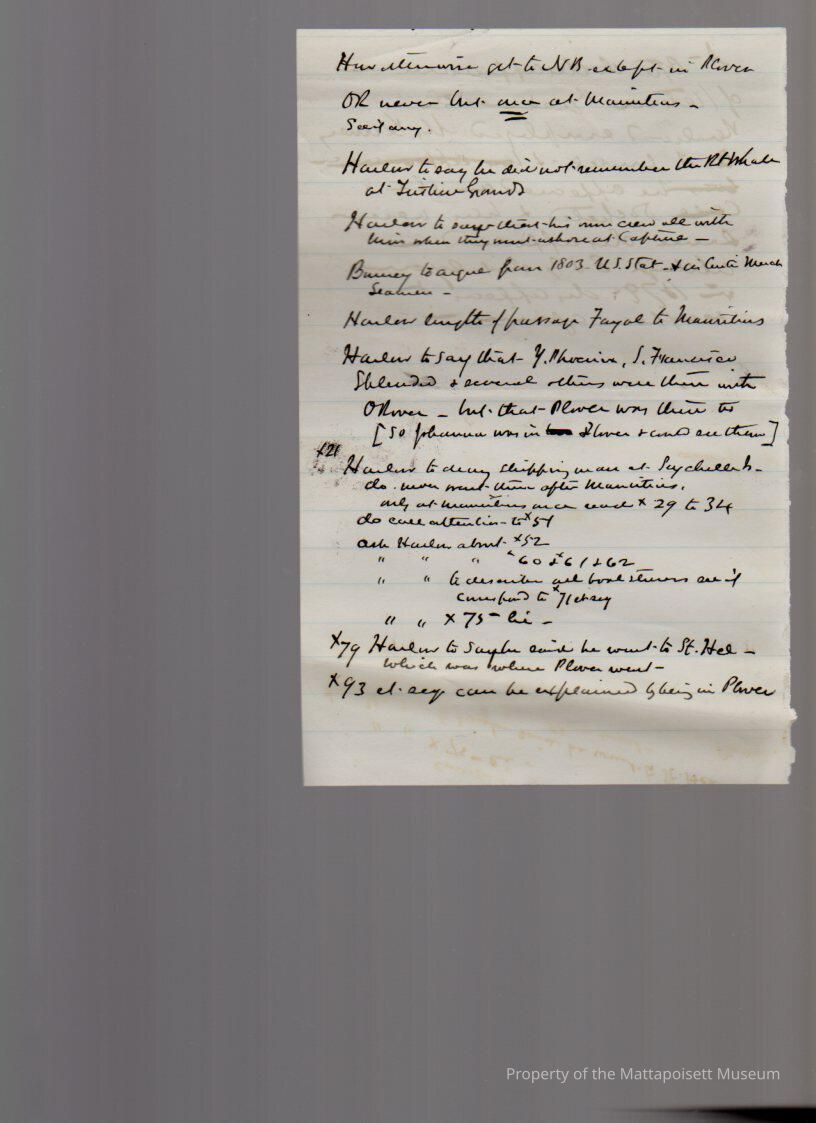 How otherwise get to N B except in Plover
OR never but once at Mauritius -
Scit any.
Harlow to say he did not remember the Rt Whale
at Fishing Grounds
Harlow to say that his own crew all with
him when they went ashore at Capture -
Burney to argue from 1803 U.S. Stat. Merch
Seamen -
Harlow length of passage Fayal to Mauritius
Harlow to say that Y. Phoenix, S. Francisco
Splendid & several others were there with
O Rover - but that Plover was there to
[So Johanna was in Plover & could see them]
x21
Harlow to deny shipping man at Seychelles -
do. never went there after Mauritius.
only at Mauritius once read x 29 to 34
do call attention to x 51
ask Harlow about x52
" " " x 60 & x 61 & 62
" " to describe all boat steerers see if
correspond to x 71 et seq
" " x 75 - lie -
x79 Harlow to say he said he went to St. Hel -
which was where Plover went -
x93 et seq can be explained by being in Plover
Property of the Mattapoisett Museum